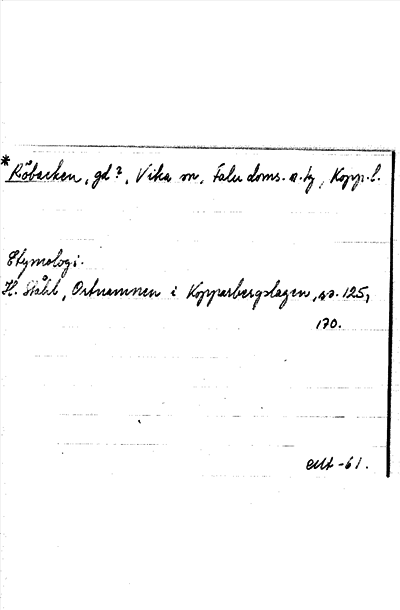 * Råbacken, gd?, Vika sn, Falu doms. a. tg, Kopp. l.
Etymologi.
H. Ståhl, Ortnamnen i Kopparbergslagen, ss. 125,
170.
-61.